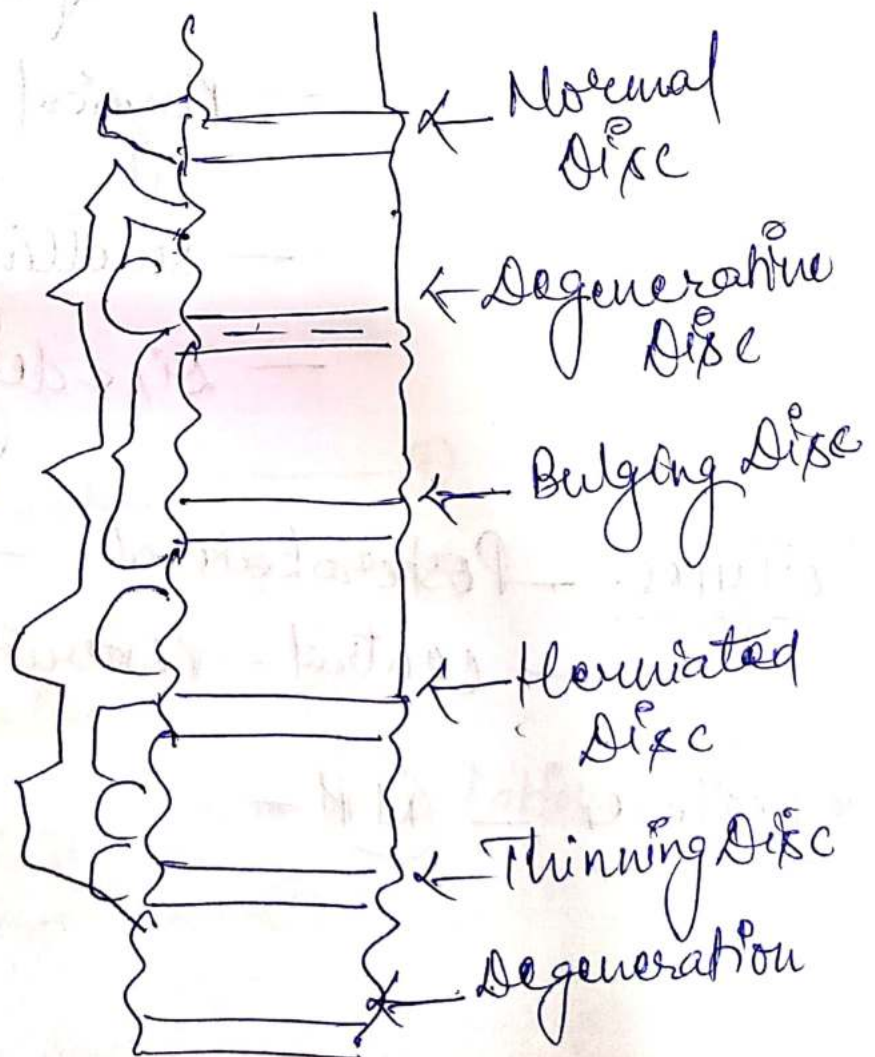 Normal
Disc
Degenerative
Disc
Bulging Disc
Herniated
Disc
Thinning Disc
Degeneration